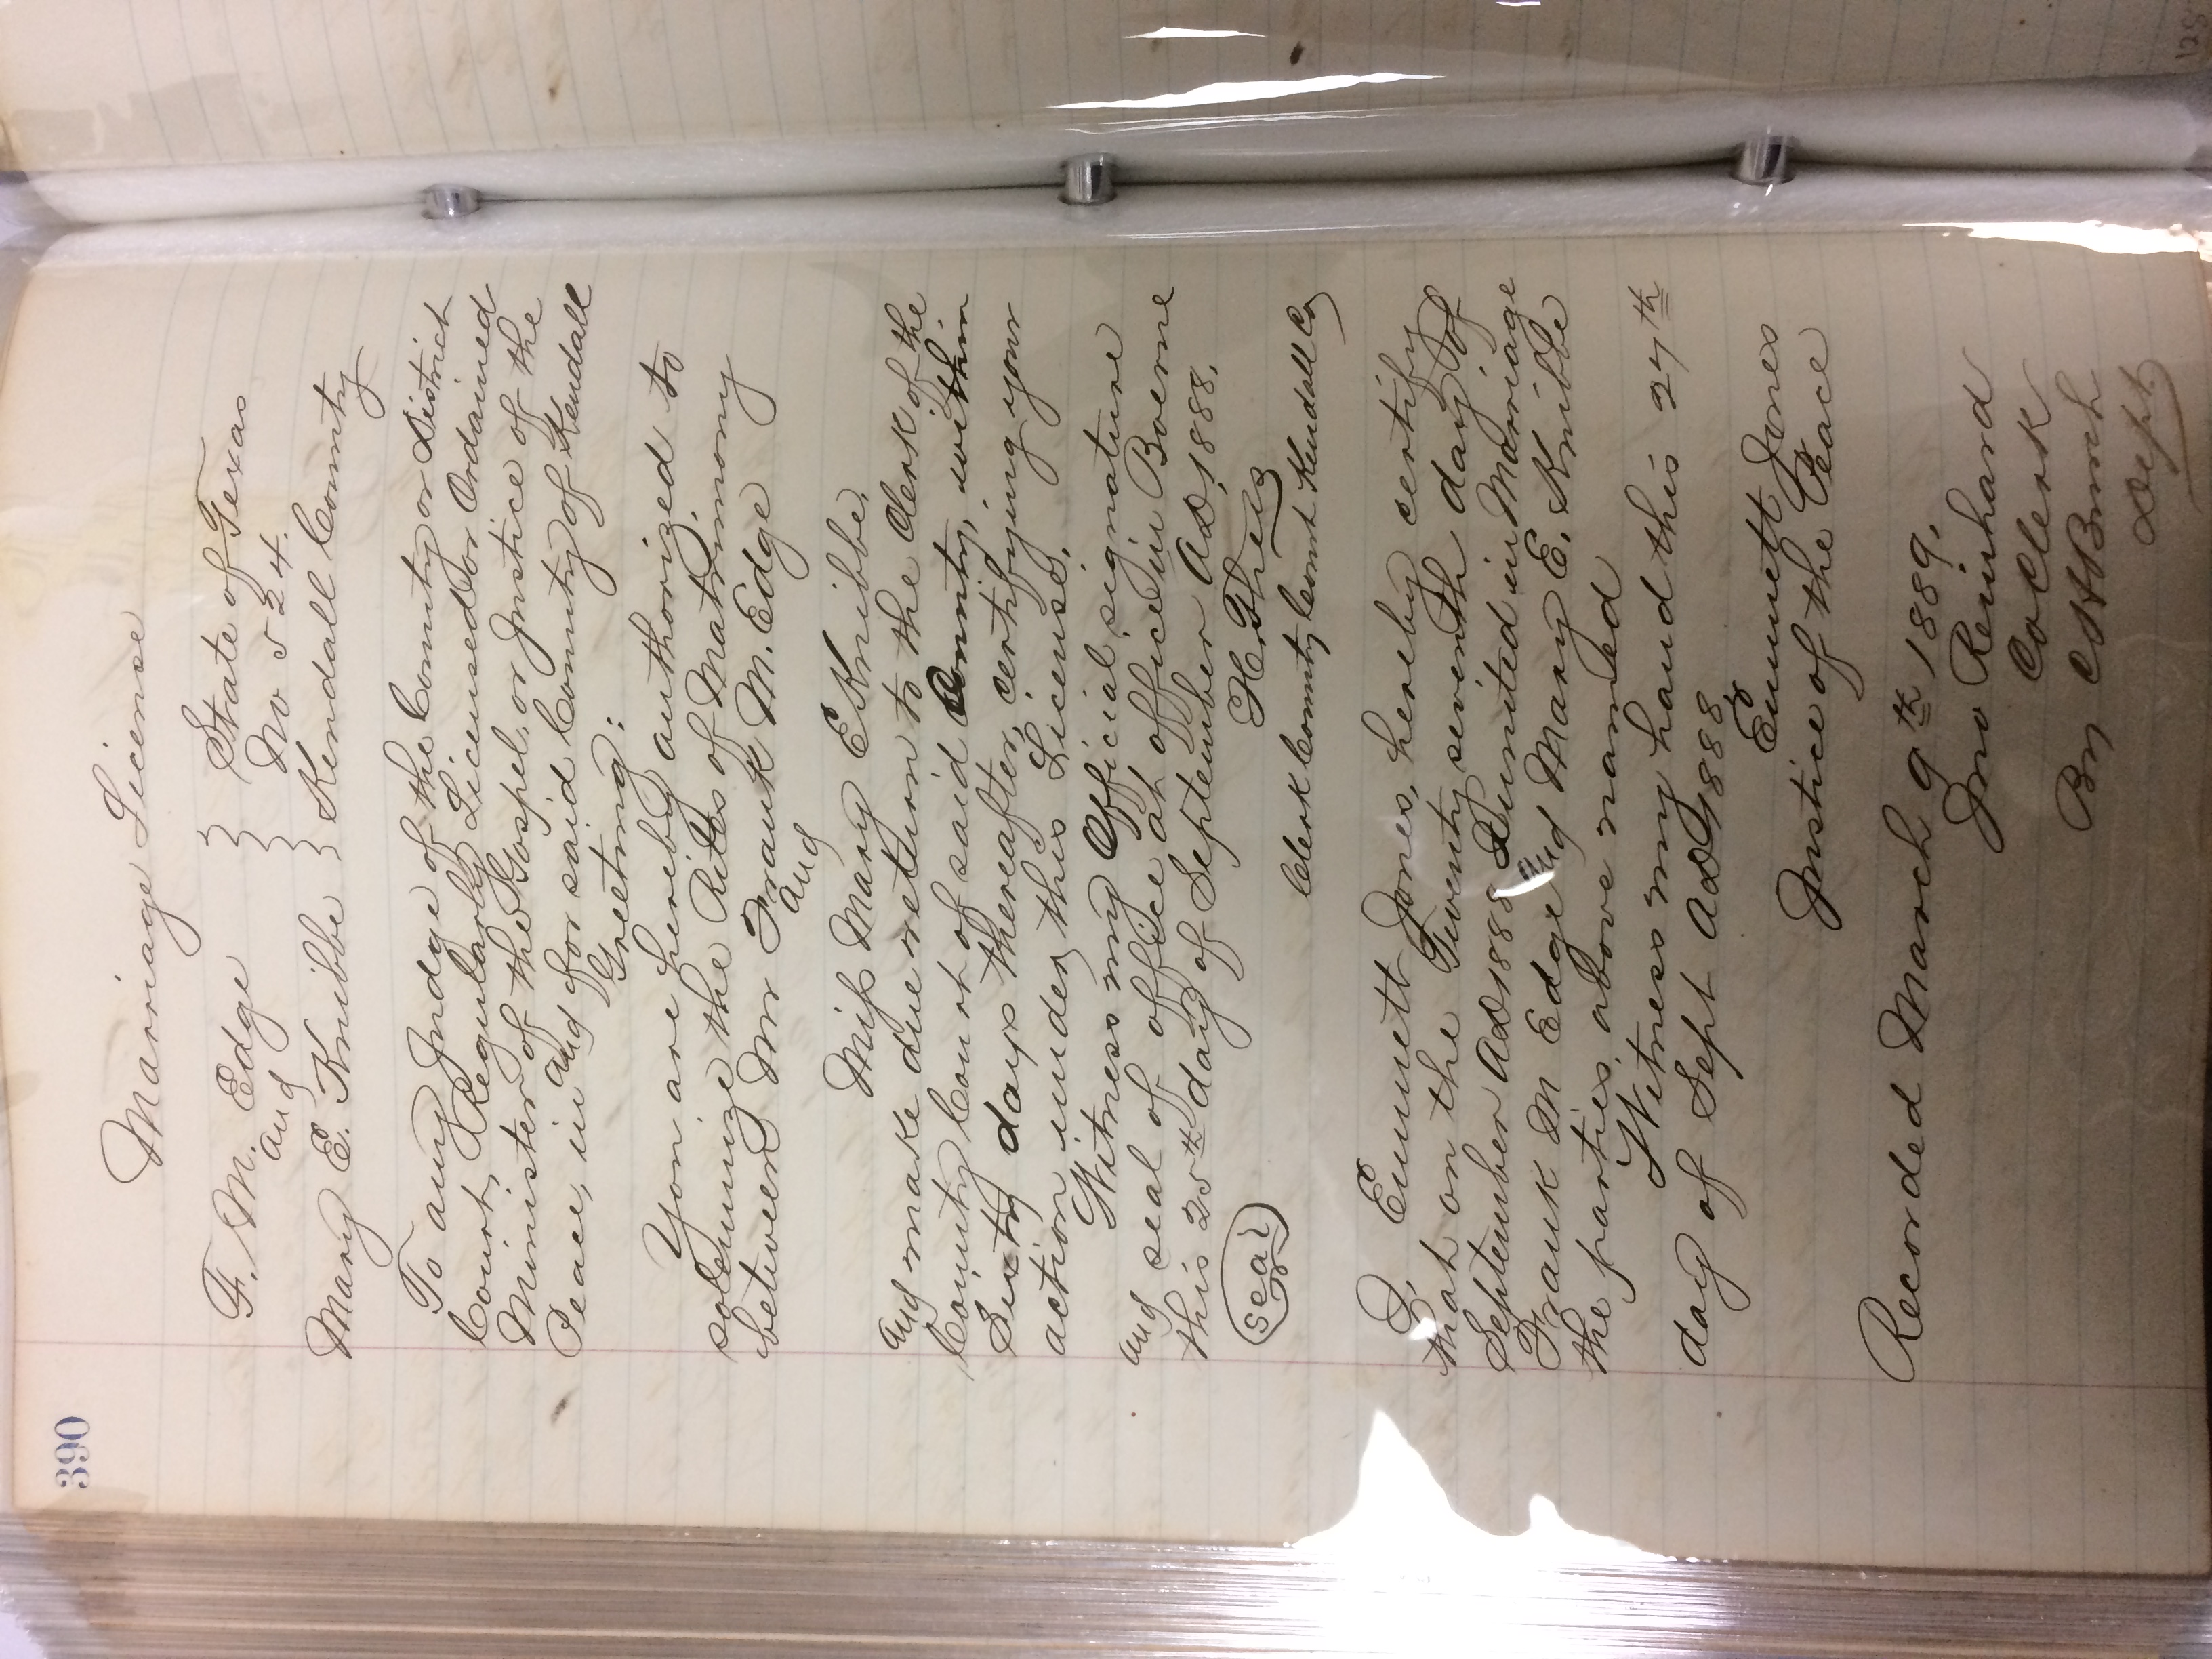 390
Marriage License
F. M. Edge } State of Texas
and } No 524.
Mary E. Knibbe } Kendall County
To any Judge of the County or District
Court, Regularly Licensed or Ordained
Minister of the Gospel, or Justice of the
Peace, in and for said County of Kendall
Greeting:
You are hereby authorized to
solemnize the Rites of Matrimony
between Mr Frank M. Edge
and
Miss Mary E Knibbe.
and make due return to the Clerk of the
County Court of said County, within
Sixty days thereafter, certifying your
action under this License.
Witness my Official signature
and seal of office at office in Boerne
this 25th day of September AD, 1888.
Seal
H Theis
Clerk County Court Kendall Co
I, Emmett Jones, hereby certify
that on the Twenty seventh day of
September AD 1888 I united in Marriage
Frank M Edge and Mary E. Knibbe
the parties above named
Witness my hand this 27th
day of Sept AD 1888
Emmett Jones
Justice of the Peace
Recorded March 9th 1889.
Jno Reinhard
Co Clerk
By
Dept